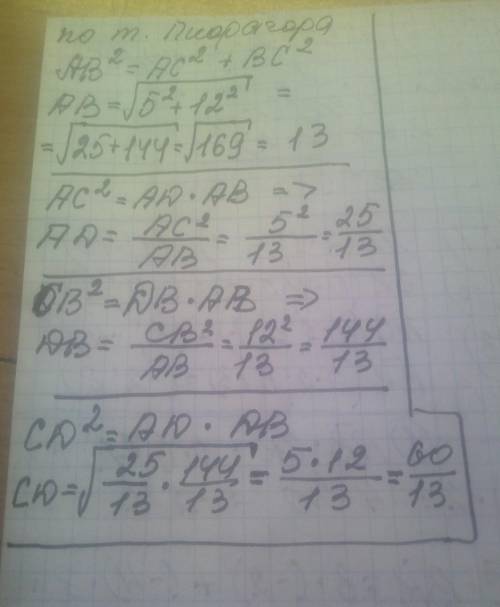 по т. Пифагора
AB² = AC² + BC²
AB = √(5² + 12²) =
= √(25 + 144) = √169 = 13
AC² = AD · AB =>
AD = AC²/AB = 5²/13 = 25/13
CB² = DB · AB =>
DB = CB²/AB = 12²/13 = 144/13
CD² = AD · DB
CD = √(25/13 · 144/13) = 5·12/13 = 60/13